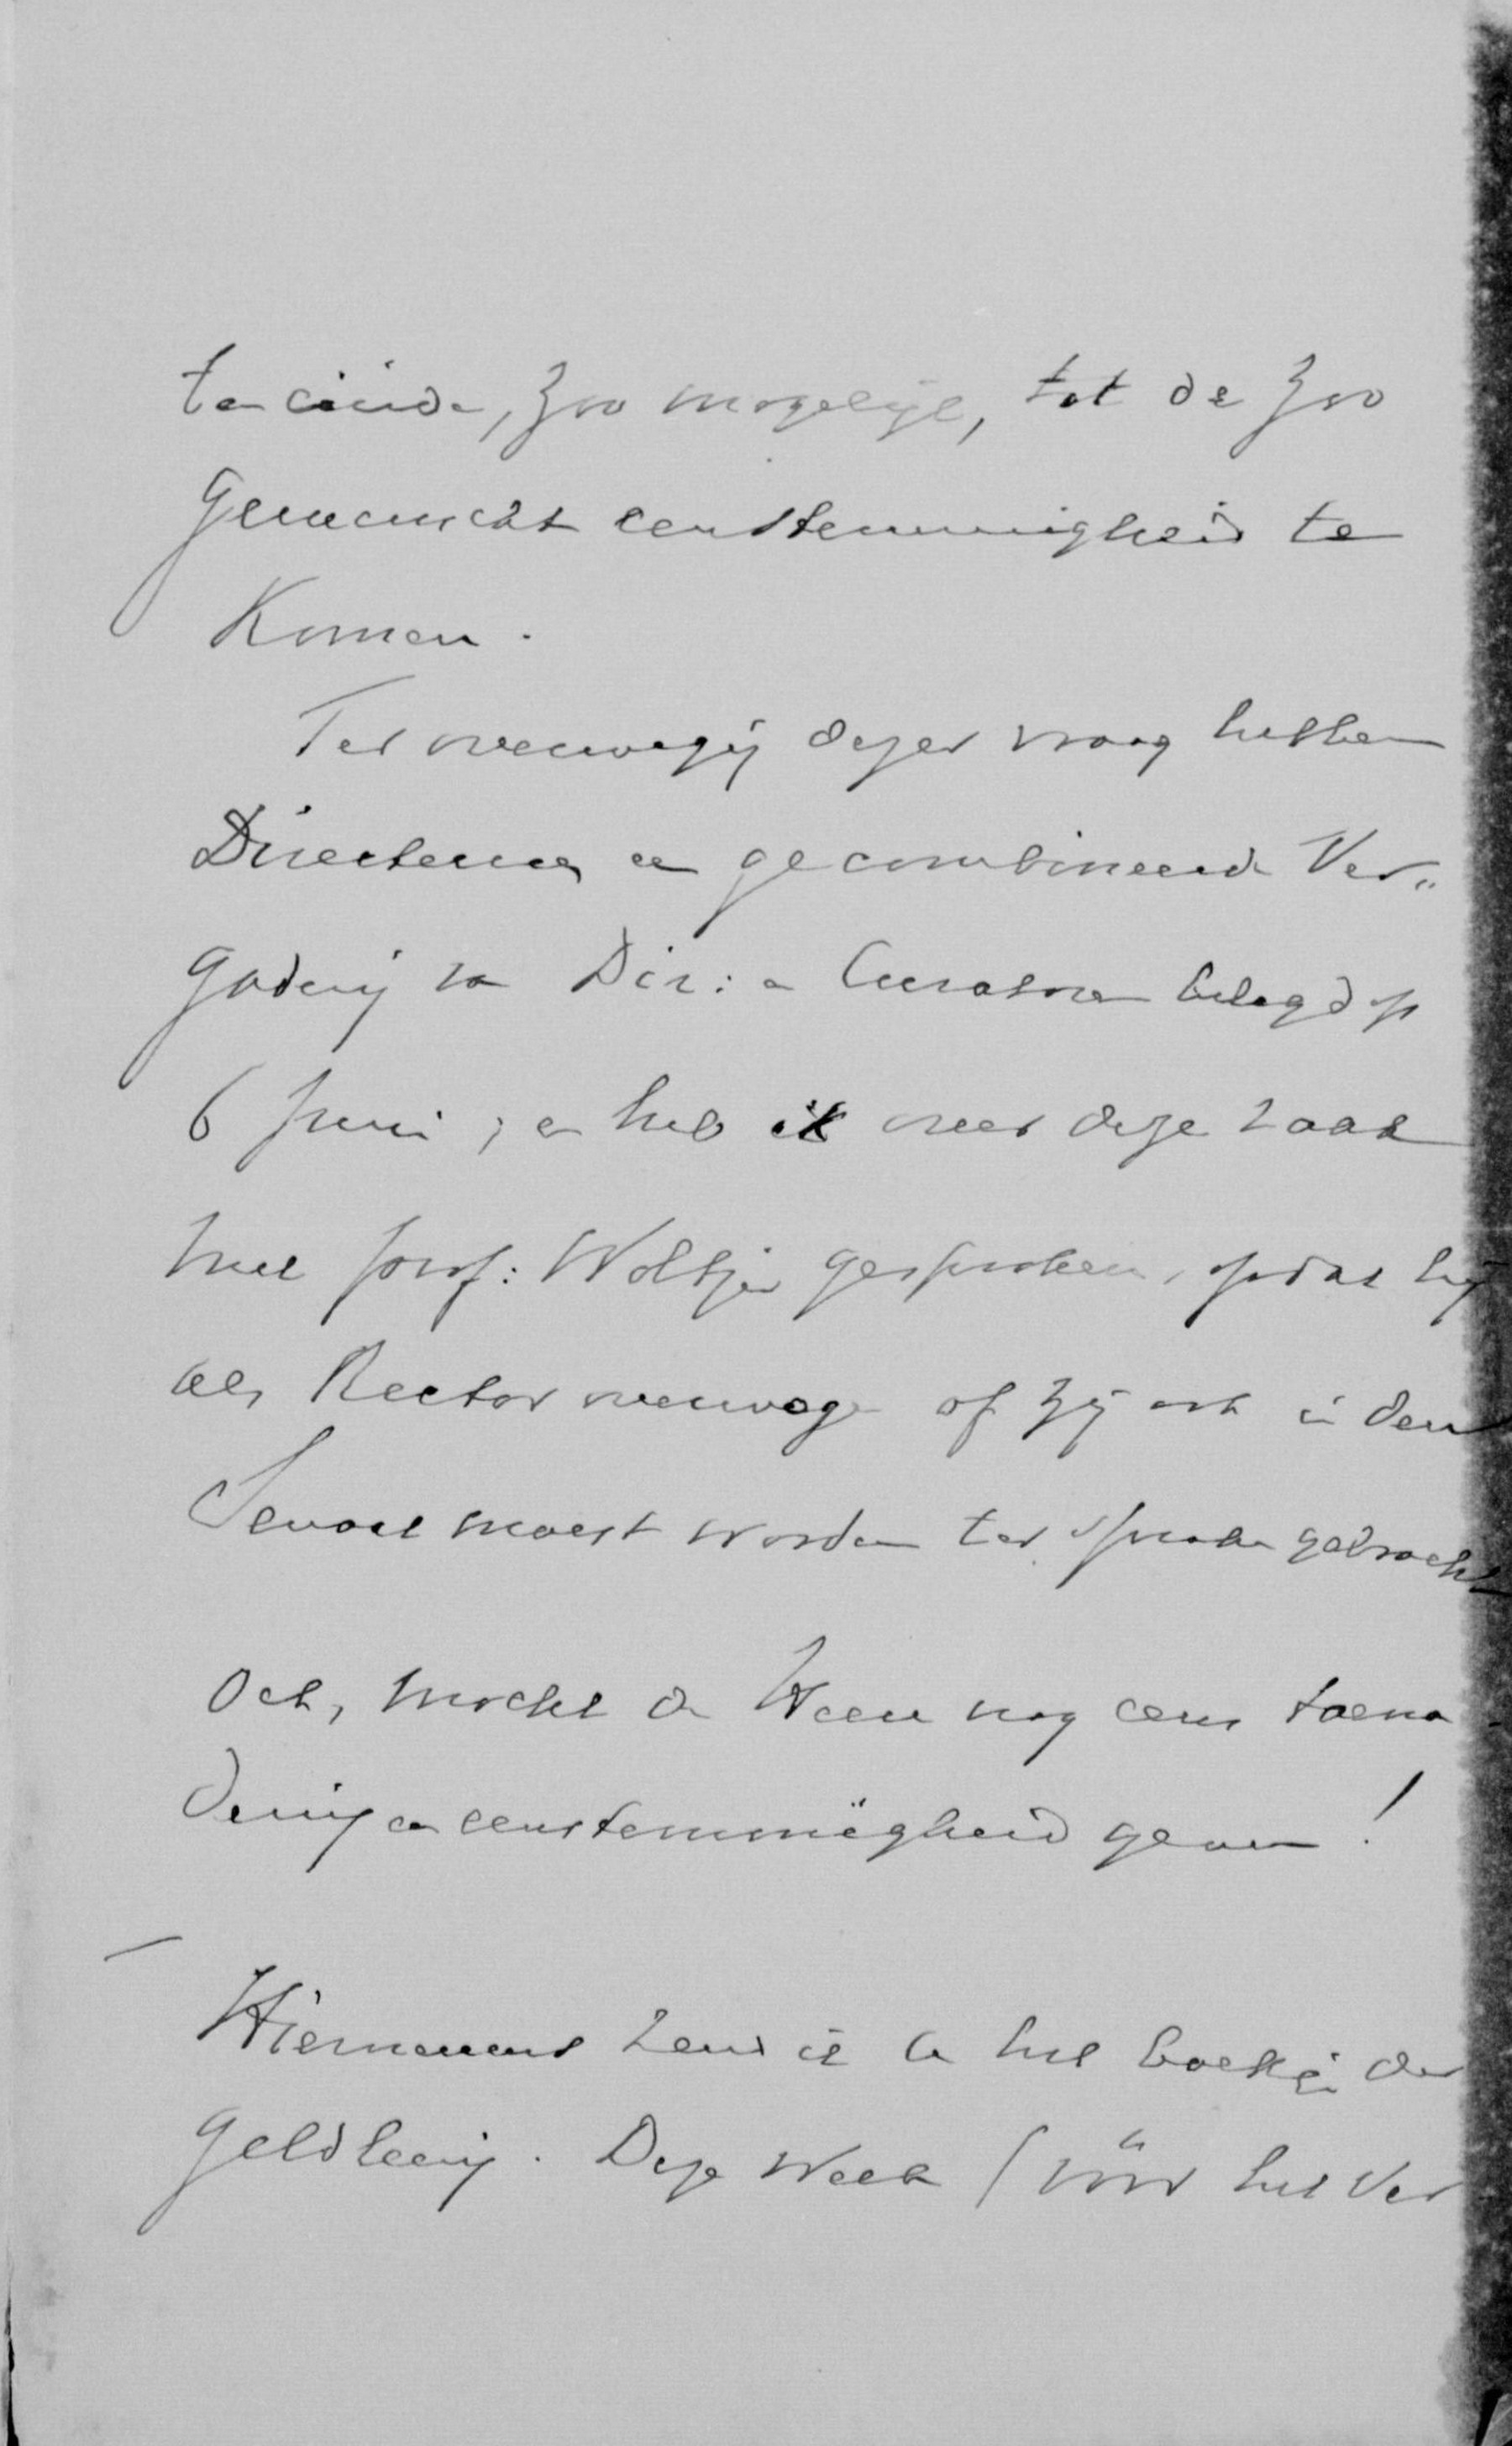 ten einde, zoo mogelijk, tot de zoo
gewenschte eenstemmigheid te
Komen.
Ter overweging dezer vraag hebben
Directeuren een gecombineerde Ver„
gadering van Dir: en Curatoren belegd op
6 Juni; en heb ik over deze zaak
met prof: Woltjer gesproken, opdat hij
als Rector overwege of zij ook in den
Senaat moest worden ter sprake gebracht
Och, mocht de Heere nog eens toena-
dering en eenstemmigheid geven!
Hiernevens zend ik U het boekje der
geldleening. Deze week (vóór het ver